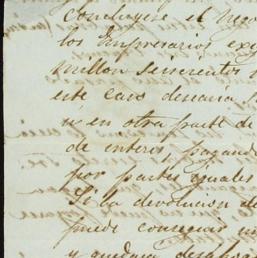 concluyese el nego
los Empresarios exi
millon seiscientos
este caso desearia
ú en otra parte de
de interes pagand
por partes iguales
Si la devolucion de
puede conseguir
y quedara desahog